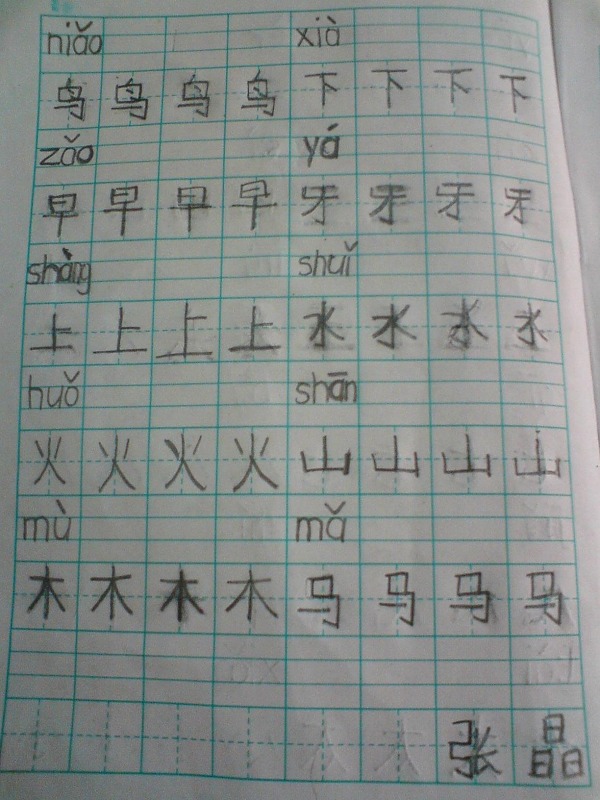 niǎo xià
鸟 鸟 鸟 鸟 下 下 下 下
zǎo yá
早 早 早 早 牙 牙 牙 牙
shàng shuǐ
上 上 上 上 水 水 水 水
huǒ shān
火 火 火 火 山 山 山 山
mù mǎ
木 木 木 木 马 马 马 马
张 晶